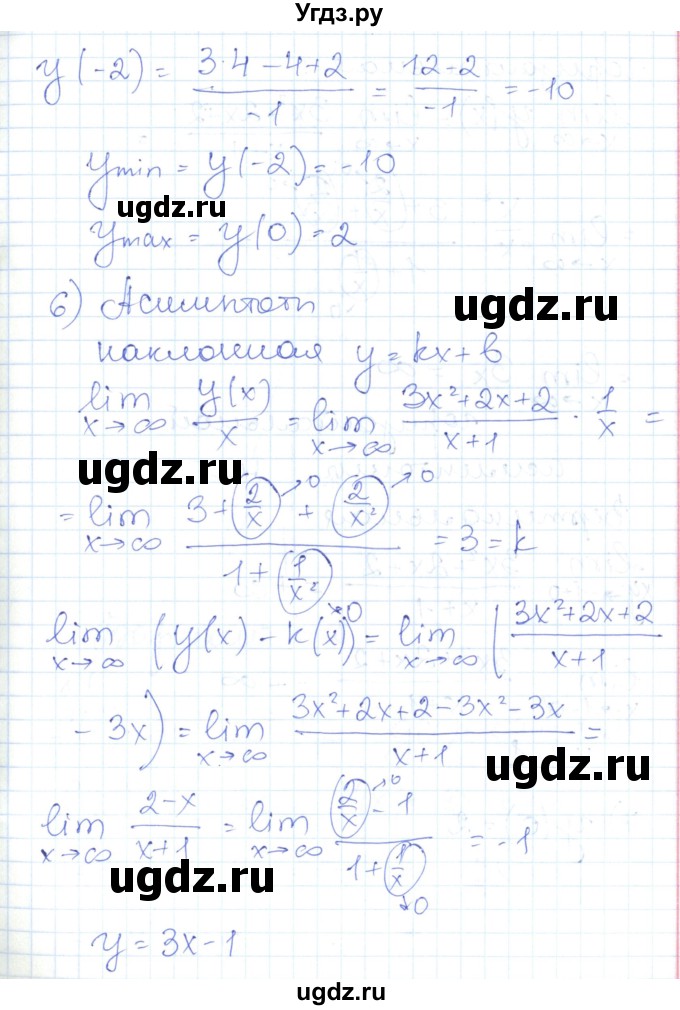 Угдз.ру
y(-2) = (3·4-4+2)/(-1) = (12-2)/(-1) = -10
ymin = y(-2) = -10
ugdz.ru
ymax = y(0) = 2
6) Асимптоты
ugdz.ru
наклонная y = kx + b
lim x→∞ y(x)/x = lim x→∞ (3x²+2x+2)/(x+1) · 1/x =
ugdz.ru
= lim x→∞ (3 + 2/x →0 + 2/x² →0)/(1 + 1/x² →0) = 3 = k
lim x→∞ (y(x) - k(x)) = lim x→∞ ((3x²+2x+2)/(x+1)
ugdz.ru
- 3x) = lim x→∞ (3x²+2x+2-3x²-3x)/(x+1) =
ugdz.ru
lim x→∞ (2-x)/(x+1) = lim x→∞ (2/x →0 - 1)/(1 + 1/x →0) = -1
ugdz.ru
y = 3x - 1
ugdz.ru